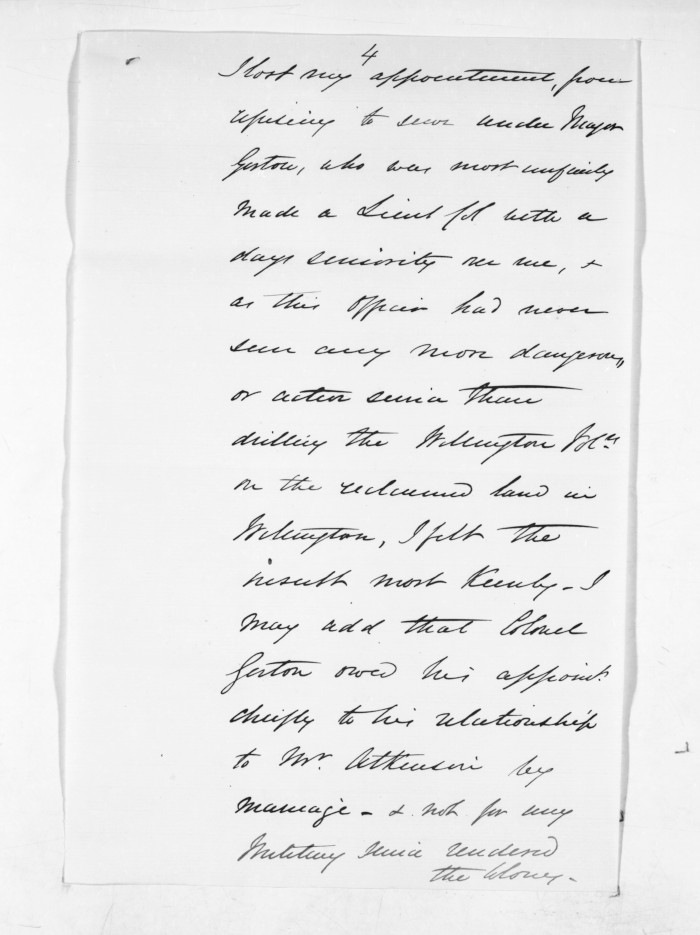 4
I lost my appointment, from
refusing to serve under Major
Gorton, who was most unfairly
made a Lieut Col with a
days seniority on me, &
as this Officer had never
seen any more dangerous,
or active service than
drilling the Wellington Vol.rs
on the reclaimed land in
Wellington, I felt the
insult most Keenly - I
may add that Colonel
Gorton owed his appoint.t
chiefly to his relationship
to Mr. Atkinson by
marriage - & not for any
Military service rendered
the Colony -